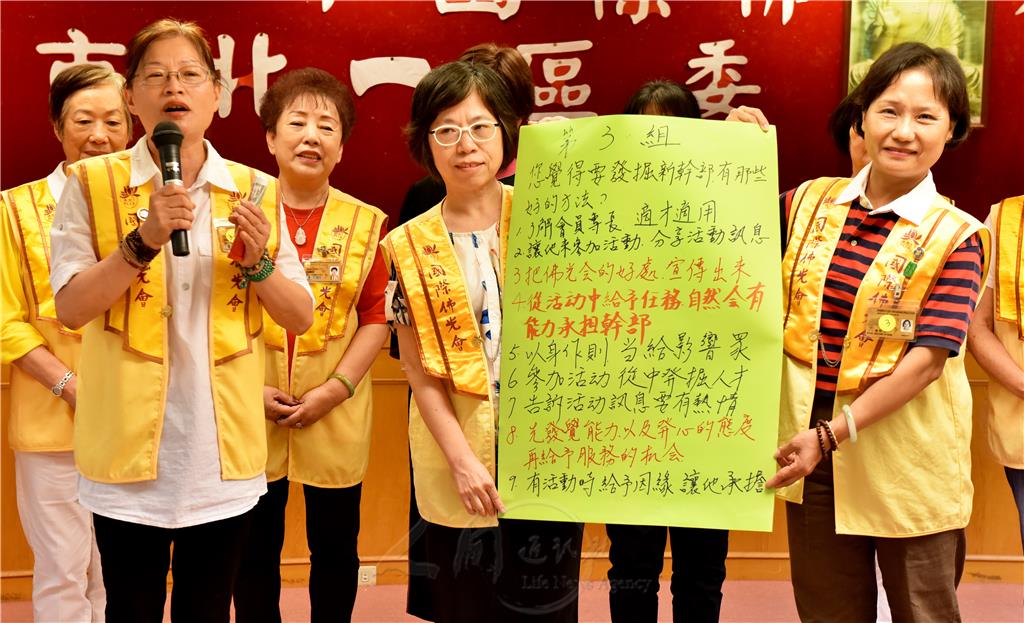 國際佛
北一區 委
第 3 組
您覺得要發掘新幹部有那些
好的方法?
1.了解會員專長 適才適用
2.讓他來參加活動.分享活動訊息
3.把佛光会的好處.宣傳出來
4.從活動中給予任務 自然会有
能力承担幹部
5.以身作則 当給影響眾
6.參加活動 從中発掘人才
7.告訴活動訊息要有熱情
8.先發覺能力以及発心的態度
再給予服務的机会
9.有活動時給予因緣 讓他承擔
國際佛光會
國際佛光會
國際佛光會
人間通訊社
Life News Agency